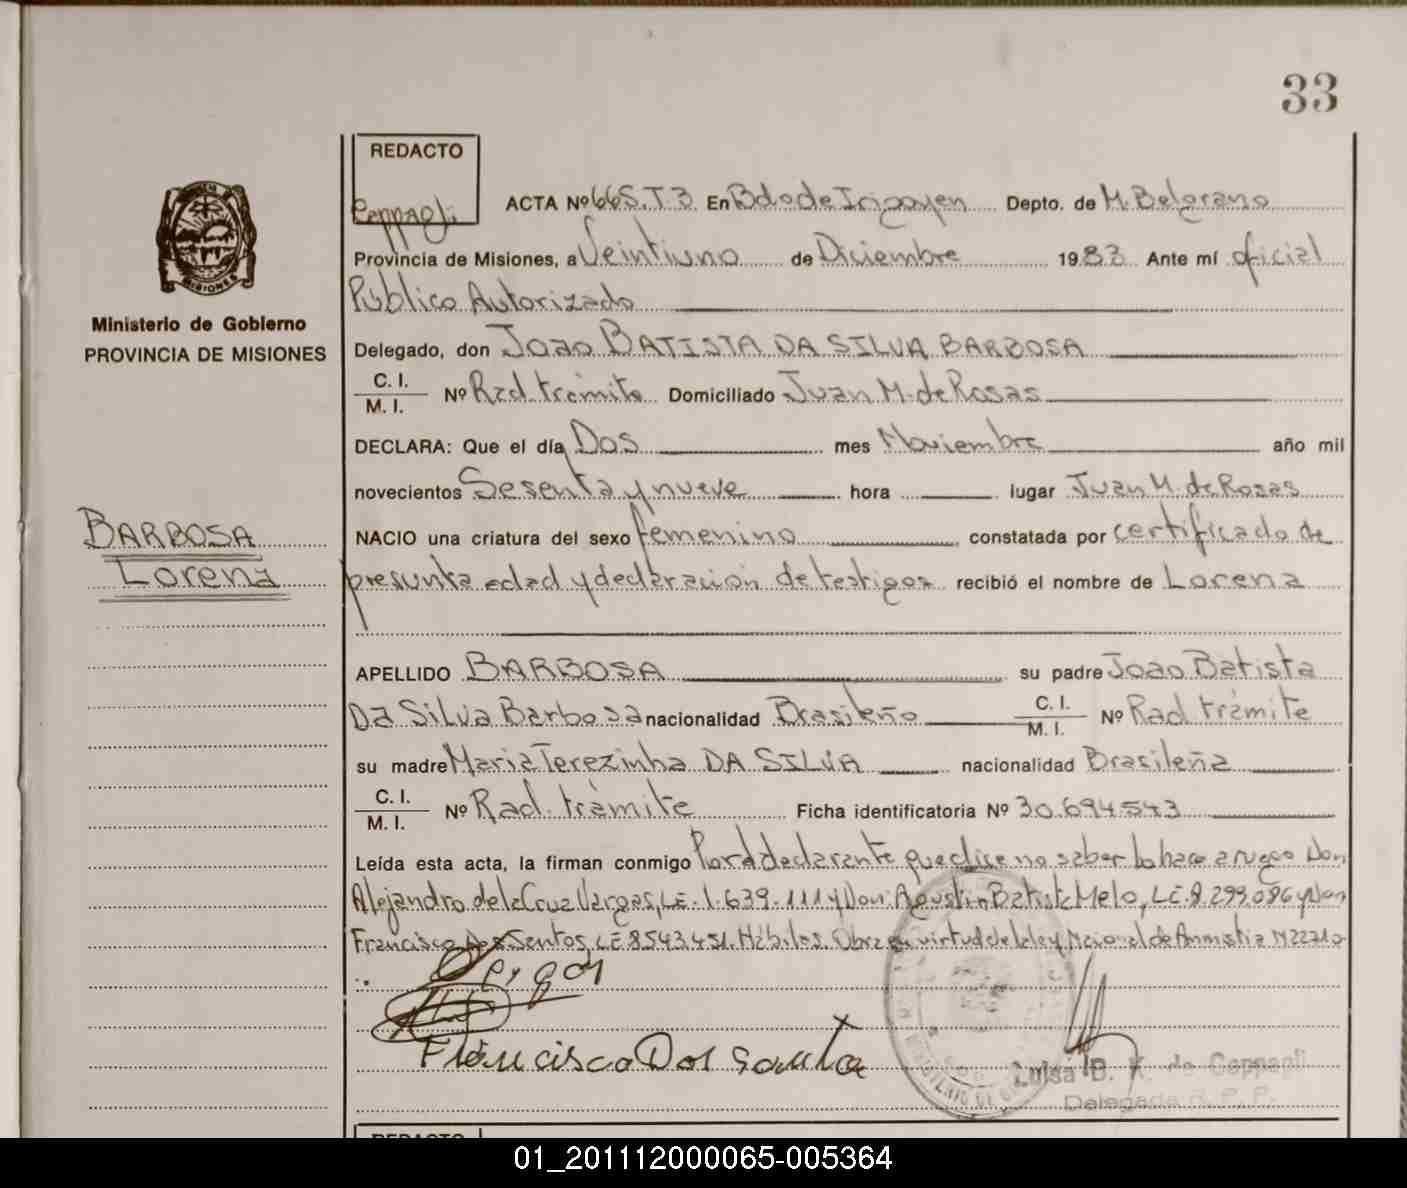 33
REDACTO
Ceppagli
ACTA Nº 66S.T 3 En Bdo de Irigoyen Depto. de M. Belgrano
Provincia de Misiones, a Veintiuno de Diciembre 1983 Ante mí oficial
Público Autorizado
Delegado, don Joao BATISTA DA SILVA BARBOSA
C. I.
M. I.
Nº Rad. trámite Domiciliado Juan M. de Rosas
DECLARA: Que el día Dos mes Noviembre año mil
novecientos Sesenta y nueve hora lugar Juan M. de Rosas
NACIO una criatura del sexo femenino constatada por certificado de
presunta edad y declaración de testigos recibió el nombre de Lorena
APELLIDO BARBOSA su padre Joao Batista
Da Silva Barbosa nacionalidad Brasileño C. I.
M. I.
Nº Rad. trámite
su madre Maria Terezinha DA SILVA nacionalidad Brasileña
C. I.
M. I.
Nº Rad. trámite Ficha identificatoria Nº 30.694.543
Leída esta acta, la firman conmigo Por el declarante que dice no saber lo hace a ruego Don
Alejandro de la Cruz Vargas, LE. 1.639.111 y Don: Agustin Batista Melo, LE 8.299.086 y Don
Francisco Dos Santos, LE 8.543.451. Hábiles. Obra en virtud de la ley Nacional de Amnistia N 22710
Francisco Dos Santos
Luisa B. K. de Ceppagli
Delegada R. P. P.
MISIONES
Ministerio de Gobierno
PROVINCIA DE MISIONES
BARBOSA
Lorena
REDACTO
01_201112000065-005364